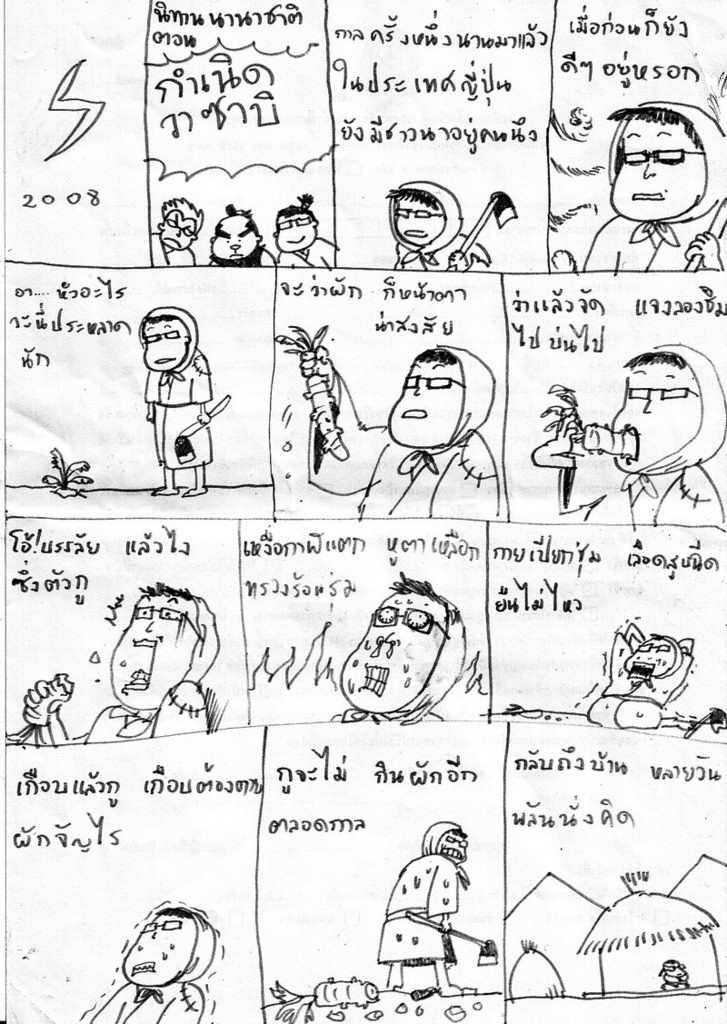 2008
นิทานนานาชาติ
ตอน
กำเนิด
วาซาบิ
กาลครั้งหนึ่งนานมาแล้ว
ในประเทศญี่ปุ่น
ยังมีชาวนาอยู่คนนึง
เมื่อก่อนก็ยัง
ดีๆ อยู่หรอก
อา.... หัวอะไร
วะนี่ประหลาด
นัก
จะว่าผัก ก็หน้าตา
น่าสงสัย
ว่าแล้วจด แจงลองชิม
ไป บ่นไป
โอ้! บรรลัย แล้วไง
ซึ่งตัวกู
เหงื่อกาฬแตก หูตาเหลือก
ทรวงร้อนรุ่ม
กายเปียกชุ่ม เลือดสูบฉีด
ยืนไม่ไหว
เกือบแล้วกู เกือบต้องตาย
ผักจัญไร
กูจะไม่ กินผักอีก
ตลอดกาล
กลับถึงบ้าน หลายวัน
พลันนั่งคิด